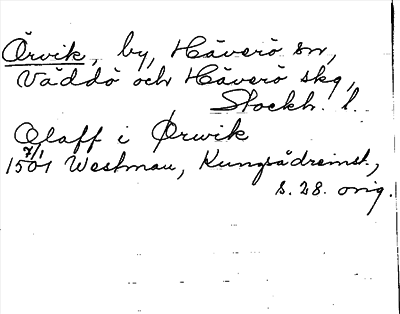 Örvik, by, Häverö sn,
Väddö och Häverö skg,
Stockh. l.
Olaff i Ørwik
7/1
1501 Westman, Kungsådreinst.,
s. 28. orig.